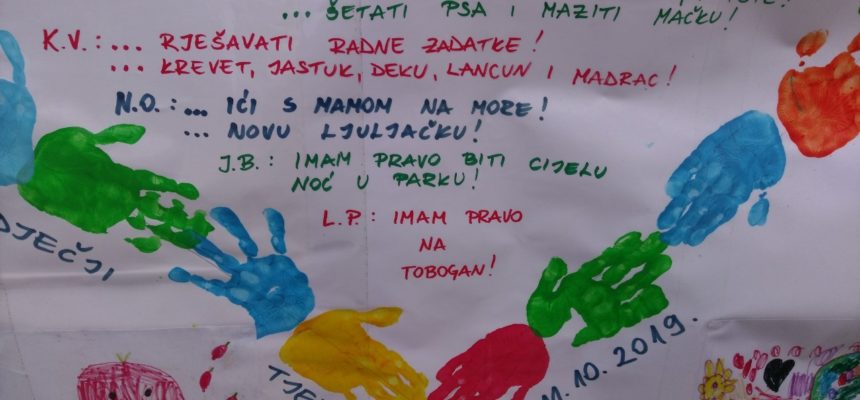 ... ŠETATI PSA I MAZITI MAČKU!
K.V.: ... RJEŠAVATI RADNE ZADATKE!
... KREVET, JASTUK, DEKU, LANCUN I MADRAC!
N.O.: ... IĆI S MAMOM NA MORE!
... NOVU LJULJAČKU!
J.B.: IMAM PRAVO BITI CIJELU
NOĆ U PARKU!
L.P.: IMAM PRAVO
NA
TOBOGAN!
DJEČJI
10. 2019.